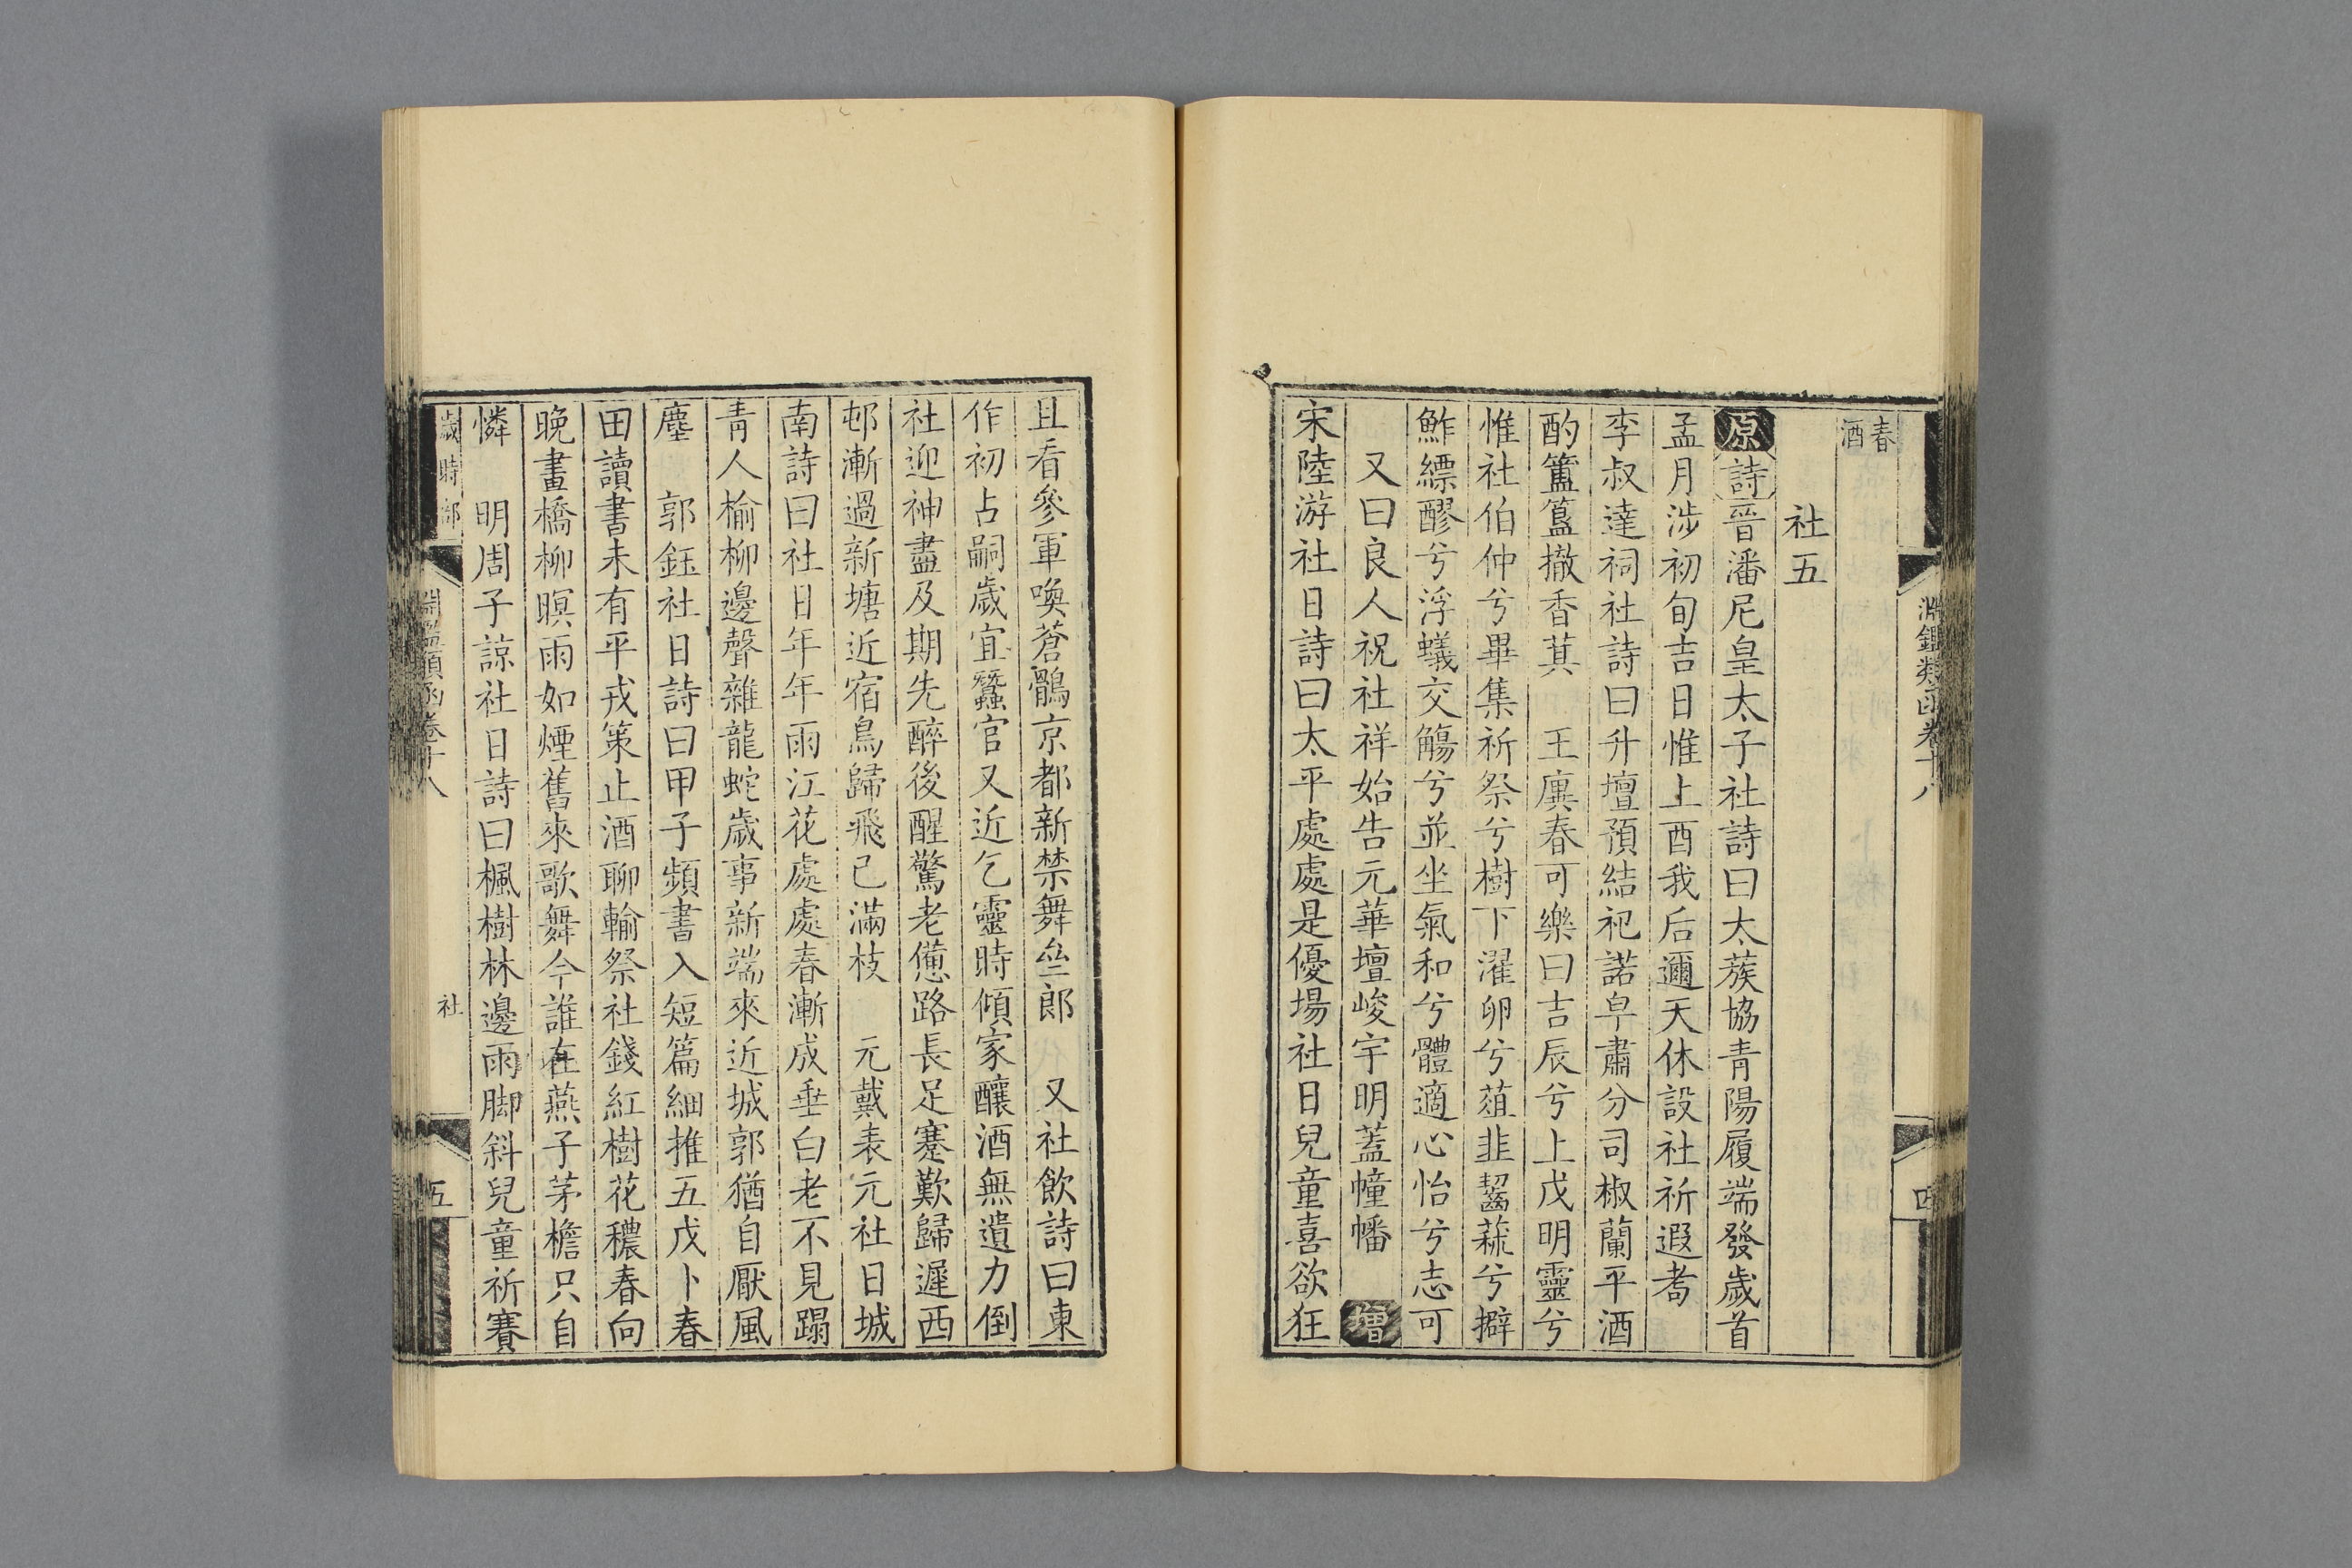 淵鑑類函卷十八
四
春
酒
社五
原詩晉潘尼皇太子社詩曰太蔟協青陽履端發歲首
孟月涉初旬吉日惟上酉我后邇天休設社祈遐耇
李叔達祠社詩曰升壇預結祀諾皐肅分司椒蘭平酒
酌簠簋撤香萁　王廙春可樂曰吉辰兮上戊明靈兮
惟社伯仲兮畢集祈祭兮樹下濯卵兮菹韭齧蒜兮擗
鮓縹醪兮浮蟻交觴兮並坐氣和兮體適心怡兮志可
又曰良人祝社祥始告元華壇峻宇明蓋幢幡　增
宋陸游社日詩曰太平處處是優場社日兒童喜欲狂
且看參軍喚蒼鶻京都新禁舞㘴郎　又社飲詩曰東
作初占嗣歲宜蠶官又近乞靈時傾家釀酒無遺力倒
社迎神盡及期先醉後醒驚老憊路長足蹇歎歸遲西
邨漸過新塘近宿鳥歸飛已滿枝　元戴表元社日城
南詩曰社日年年雨江花處處春漸成垂白老不見蹋
青人榆柳邊聲雜龍蛇歲事新端來近城郭猶自厭風
塵　郭鈺社日詩曰甲子頻書入短篇細推五戊卜春
田讀書未有平戎策止酒聊輸祭社錢紅樹花穠春向
晚畫橋柳暝雨如煙舊來歌舞今誰在燕子茅檐只自
憐　明周子諒社日詩曰楓樹林邊雨脚斜兒童祈賽
歲時部
淵鑑類函卷十八
社
五